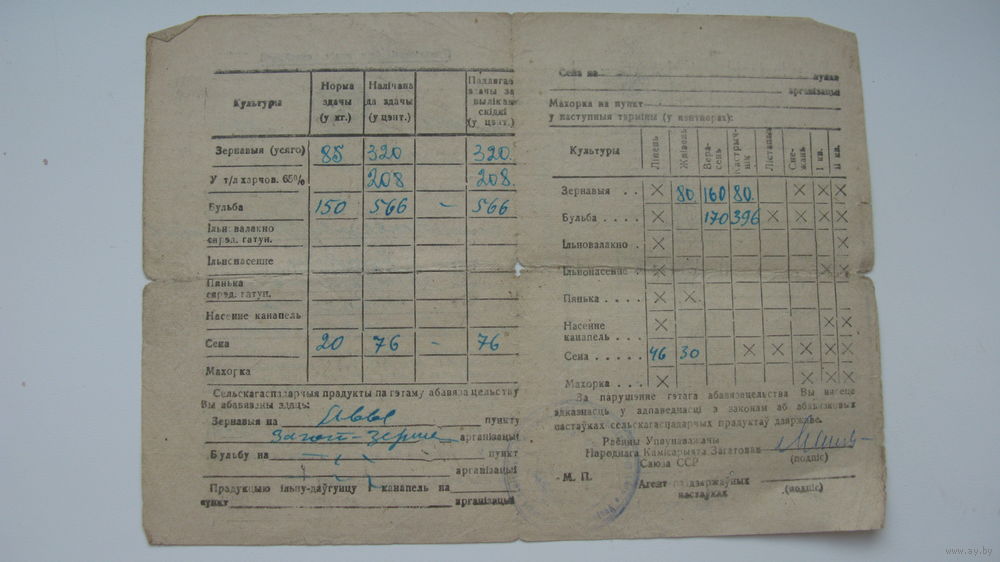 Культуры Норма здачы (у кг.) Налічана да здачы (у цэнт.) скідкі (у цэнт.)
Зернавыя (усяго) 85 320 320
У т/л харчов. 65% 208 208
Бульба 150 566 - 566
Ільн. валакно сярэд. гатун.
Ільнонасенне
Пянька сярэд. гатун.
Насенне канапель
Сена 20 76 - 76
Махорка
Сельскагаспадарчыя прадукты па гэтаму абавязацельству
Вы абавязаны здаць:
Зернавыя на пункту
Загот-зерно арганізацыі
Бульбу на пункт
арганізацыі
Прадукцыю ільну-даўгунцу і канапель на
пункт арганізацыі
Сена на пункт
арганізацыі
Махорка на пункт
у наступныя тэрміны (у цэнтнерах):
Культуры Ліпень Жнівень Верасень Кастрычнік Лістапад Снежань І кв. ІІ кв.
Зернавыя . . × 80 160 80 × × ×
Бульба . . . . × 170 396 × × × ×
Ільновалакно . × ×
Ільнонасенне . × × ×
Пянька . . . . × ×
Насенне канапель . . . × × ×
Сена . . . . . 46 30 × × × × ×
Махорка . . . × × × ×
За парушэнне гэтага абавязацельства Вы нясеце
адказнасць у адпаведнасці з законам аб абавязковых
пастаўках сельскагаспадарчых прадуктаў дзяржаве.
Раённы Упаўнаважаны
Народнага Камісарыята Загатовак
Саюза ССР (подпіс)
М. П. Агент па дзяржаўных
пастаўках (подпіс)
www.ay.by